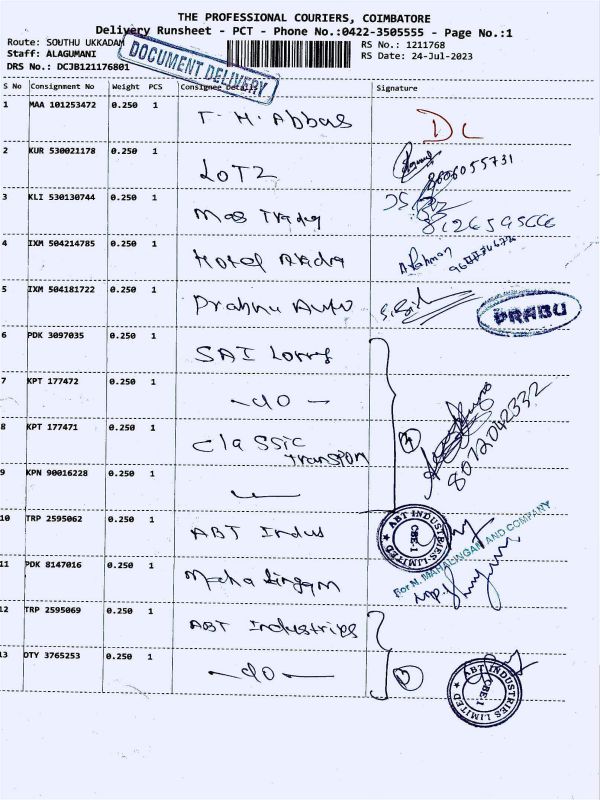 THE PROFESSIONAL COURIERS, COIMBATORE
Delivery Runsheet - PCT - Phone No.:0422-3505555 - Page No.:1
Route: SOUTHU UKKADAM
RS No.: 1211768
Staff: ALAGUMANI
RS Date: 24-Jul-2023
DRS No.: DCJB121176801
DOCUMENT DELIVERY
S No Consignment No Weight PCS Consignee Details Signature
1 MAA 101253472 0.250 1 T. H. Abbas DC
2 KUR 530021178 0.250 1 LOTZ 8606055731
3 KLI 530130744 0.250 1 Mas
4 IXM 504214785 0.250 1 Hotel
5 IXM 504181722 0.250 1 Prabhu Auto PRABU
6 PDK 3097035 0.250 1 SAI Lorry
7 KPT 177472 0.250 1 -do-
8 KPT 177471 0.250 1 Classic Transport 4 8072042332
9 KPN 90016228 0.250 1
10 TRP 2595062 0.250 1 ABT Indus
ABT INDUSTRIES LIMITED CBE.1
11 PDK 8147016 0.250 1 Mahalingam
For N. MAHALINGAM AND COMPANY
12 TRP 2595069 0.250 1 ABT Industries
13 OTY 3765253 0.250 1 -do-
ABT INDUSTRIES LIMITED CBE.1